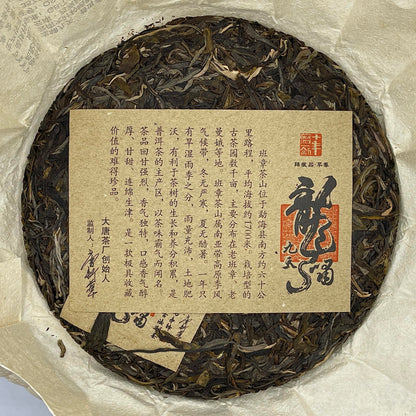 龍
九五
班章茶山位于勐海县南方约六十公
里路程，平均海拔约1700米，栽培型的
古茶园数千亩，主要分布在老班章、老
曼娥等地，班章茶山属南亚带高原季风
气候带，冬无严寒，夏无酷暑。一年只
有旱湿雨季之分，雨量充沛，土地肥
沃，有利于茶树的生长和养分积累，是
普洱茶的主产区，以茶味霸气而闻名，
茶品回甘强烈，香气独特，口感香气醇
厚、甘甜、连绵生津，是一款极具收藏
价值的难得珍品
大唐茶厂创始人
监制人：